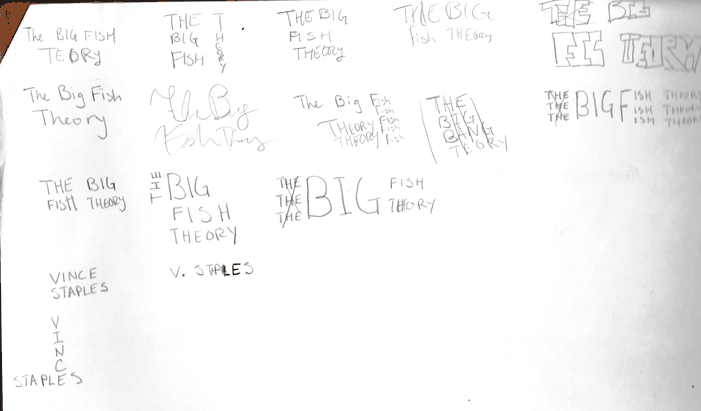 The BIG FISH
TEORY
THE
BIG
FISH
THEORY
THE BIG
FISH
THEORY
THE BIG
fish THEORY
THE BIG
The Big Fish
Theory
The Big
Fish Theory
The Big Fish
Fish
THEORY Fish
THEORY Fish
THEORY Fish
THE
BIG
BANG
TEORY
THE
THE
THE
BIG FISH THEORY
ISH THEORY
ISH THEORY
THE BIG
FISH THEORY
THE BIG
FISH
THEORY
THE
THE
THE
BIG
FISH
THEORY
VINCE
STAPLES
V. STAPLES
VINC
STAPLES